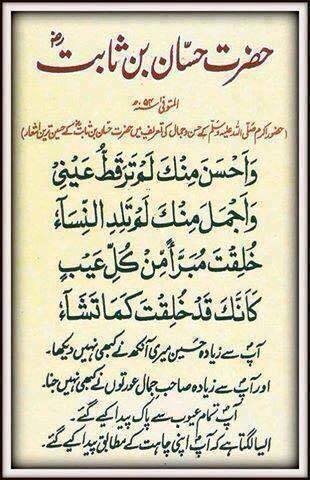 حضرت حسّان بن ثابت رضؓ
المتوفی سنہ ۵۴ھ
(حضور اکرم صلّی اللہ علیہ وسلّم کے حسن و جمال کی تعریف میں حضرت حسّان بن ثابتؓ کے حسین ترین اشعار)
وَاَحْسَنَ مِنْكَ لَمْ تَرَ قَطُّ عَيْنِيْ
وَاَجْمَلَ مِنْكَ لَمْ تَلِدِ النِّسَآءُ
خُلِقْتَ مُبَرَّأً مِّنْ كُلِّ عَيْبٍ
كَاَنَّكَ قَدْ خُلِقْتَ كَمَا تَشَآءُ
آپؐ سے زیادہ حسین میری آنکھ نے کبھی نہیں دیکھا۔
اور آپؐ سے زیادہ صاحب جمال عورتوں نے کبھی نہیں جنا۔
آپؐ تمام عیوب سے پاک پیدا کیے گئے۔
ایسا لگتا ہے کہ آپؐ اپنی چاہت کے مطابق پیدا کیے گئے۔